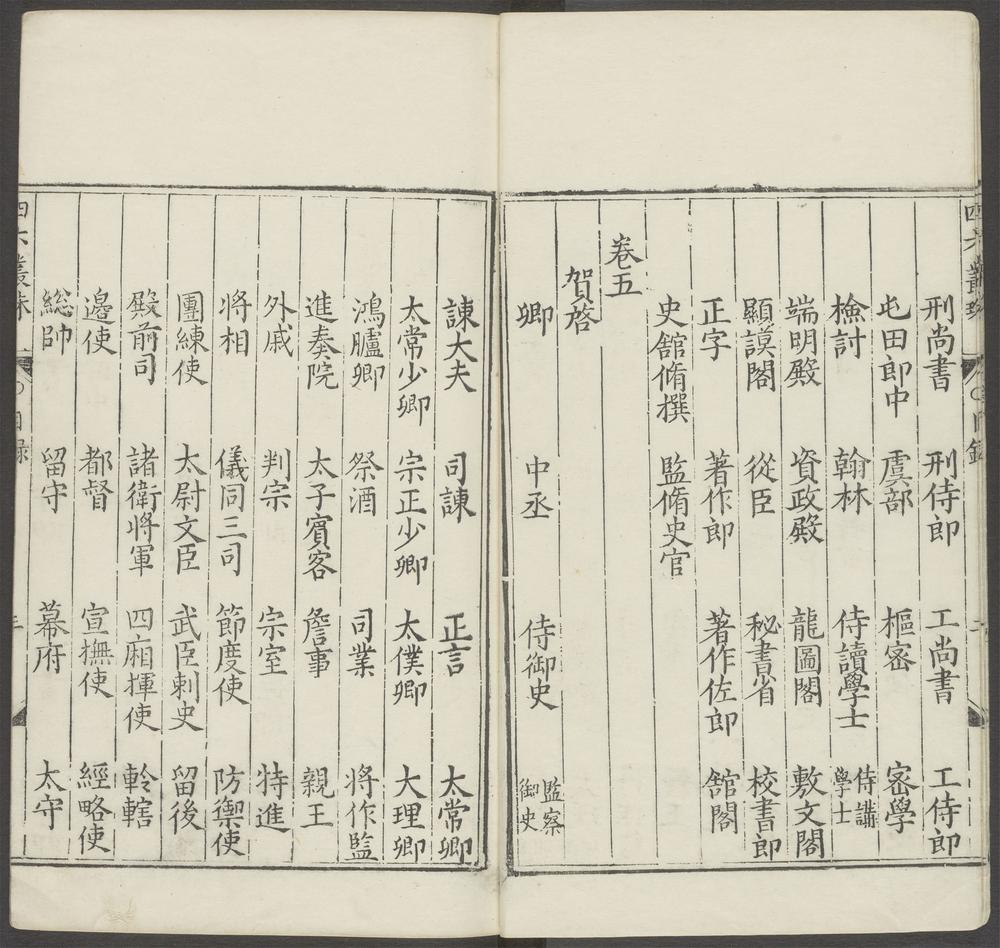 刑尚書 刑侍郎 工尚書 工侍郎
屯田郎中 虞部 樞密 密學
檢討 翰林 侍讀學士 侍講學士
端明殿 資政殿 龍圖閣 敷文閣
顯謨閣 從臣 秘書省 校書郎
正字 著作郎 著作佐郎 舘閣
史舘脩撰 監脩史官
卷五
賀啓
卿 中丞 侍御史 監察御史
諫大夫 司諫 正言 太常卿
太常少卿 宗正少卿 太僕卿 大理卿
鴻臚卿 祭酒 司業 將作監
進奏院 太子賓客 詹事 親王
外戚 判宗 宗室 特進
將相 儀同三司 節度使 防禦使
團練使 太尉文臣 武臣刺史 留後
殿前司 諸衛將軍 四廂揮使 軨轄
邊使 都督 宣撫使 經略使
総帥 留守 幕府 太守
四六叢珠 目録